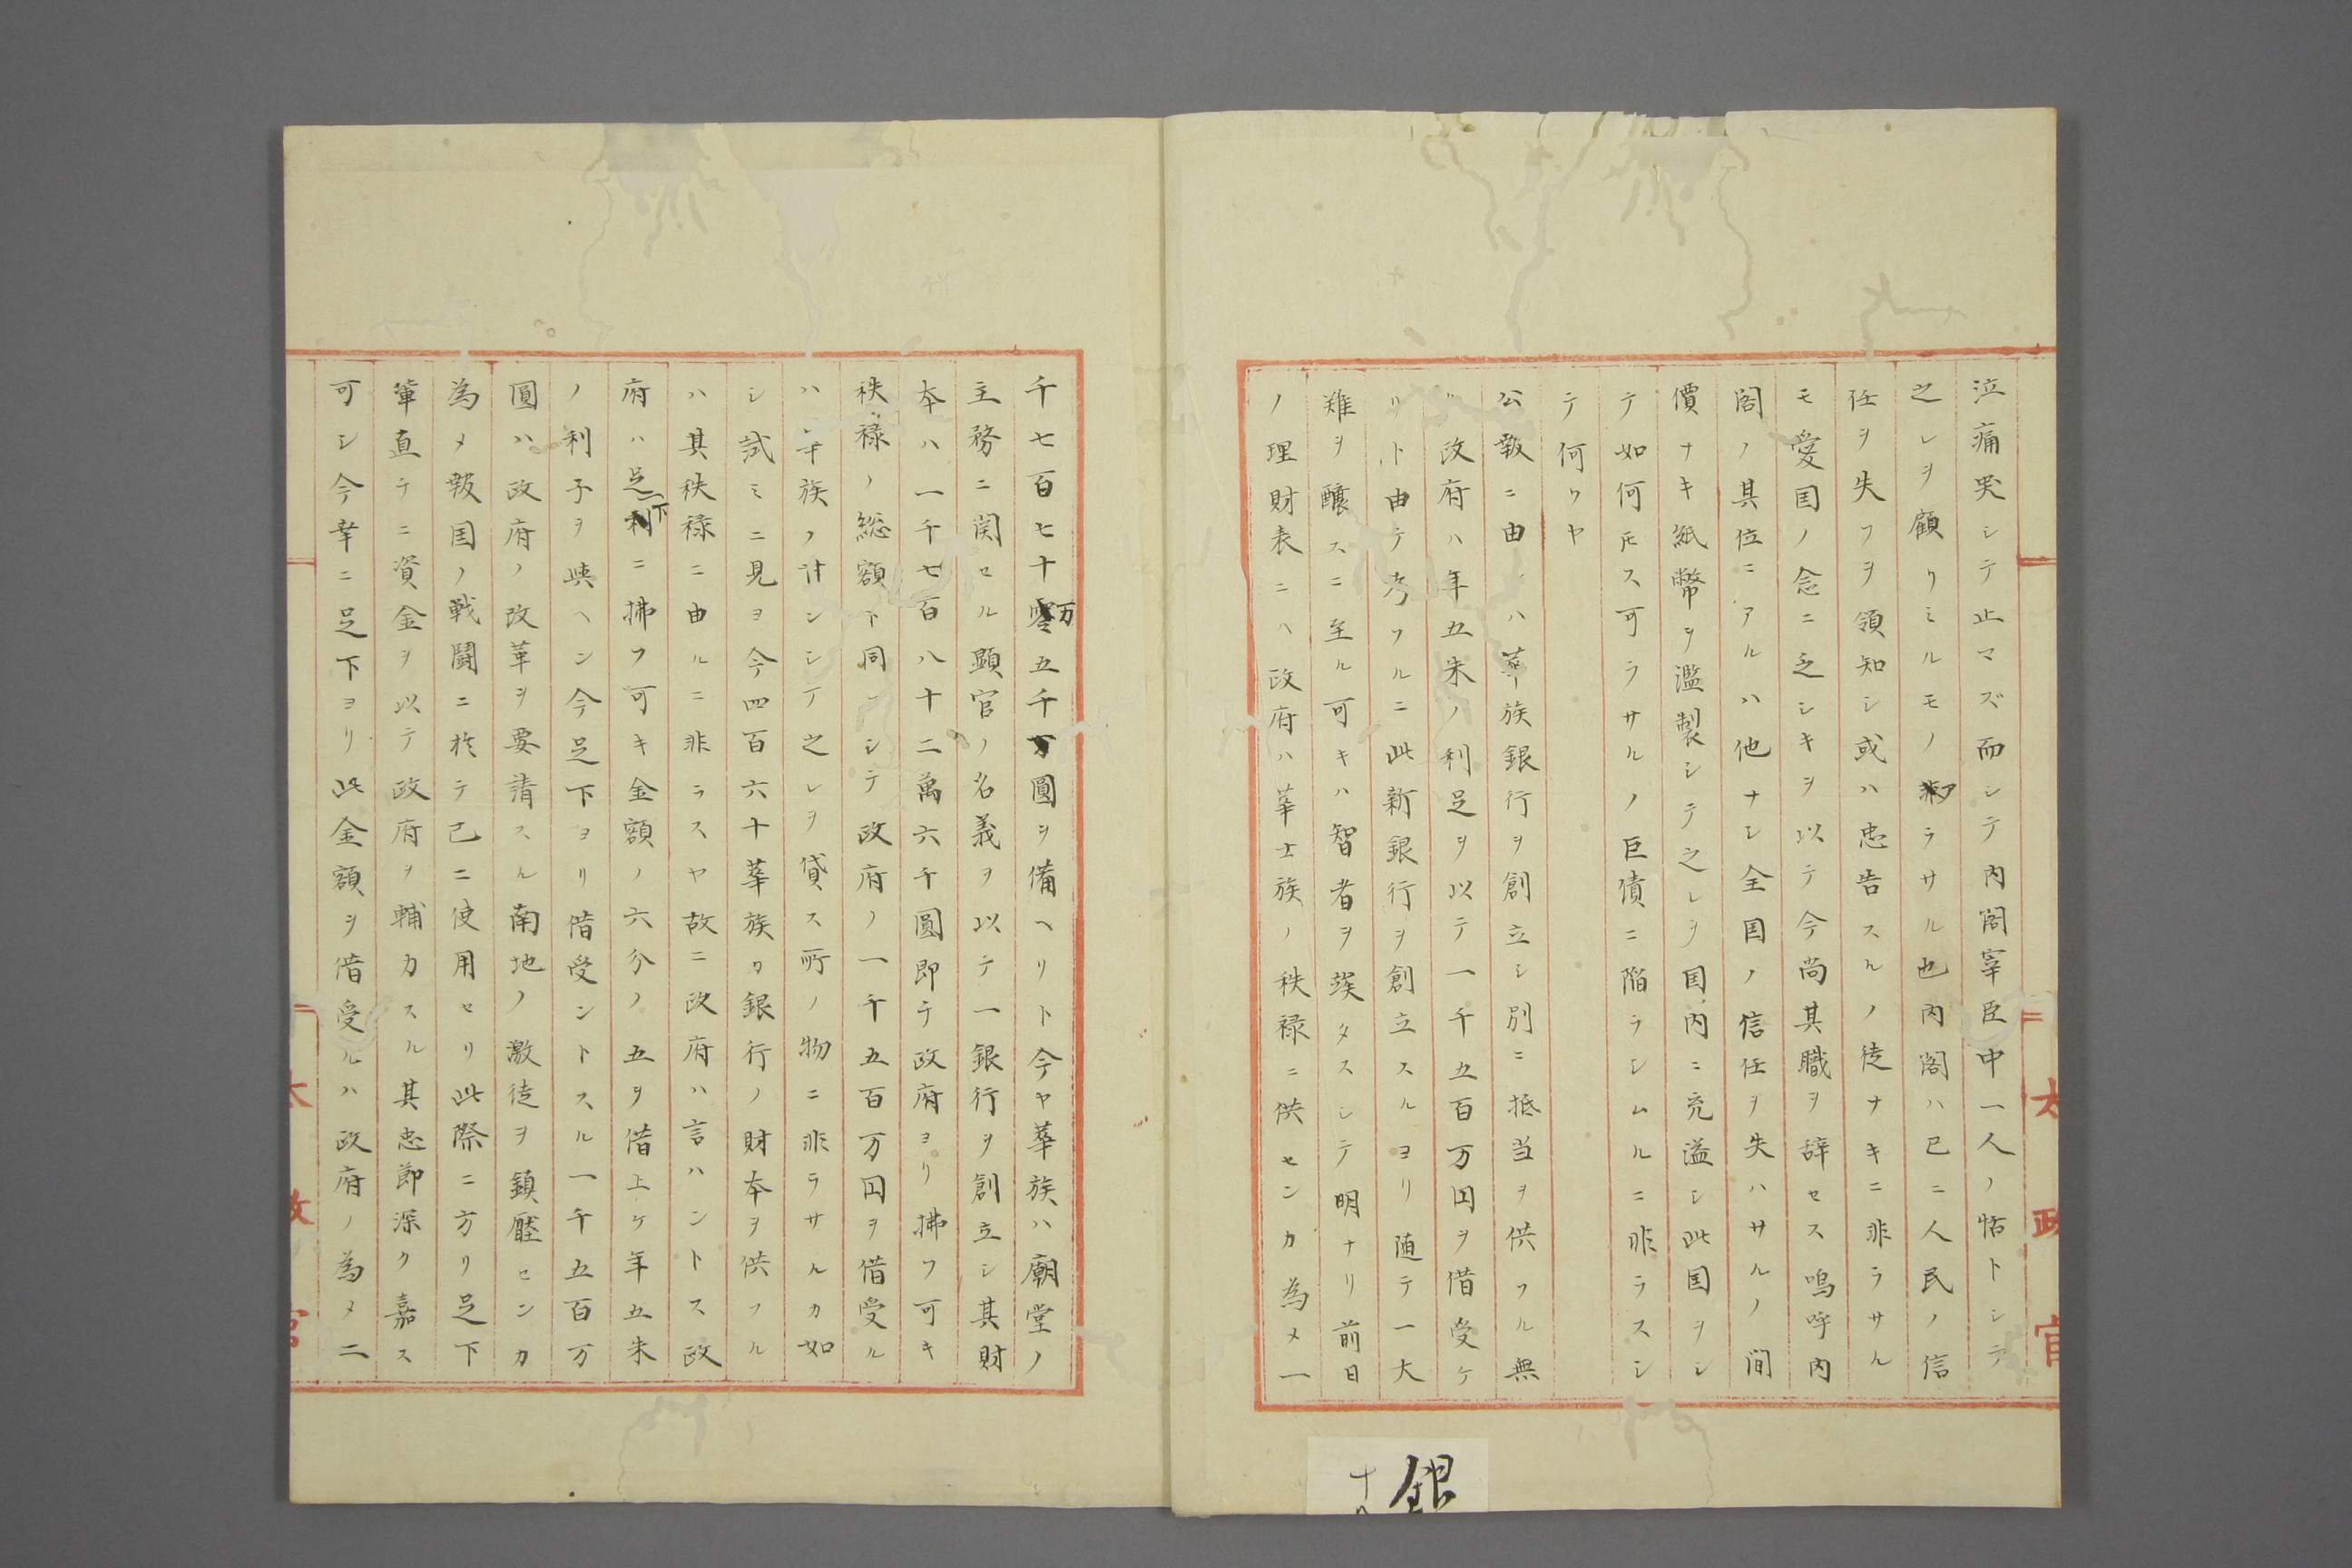 泣痛哭シテ止マズ而シテ内閣宰臣中一人ノ恬トシテ
之レヲ顧リミルモノアラサル也内閣ハ已ニ人民ノ信
任ヲ失フヲ領知シ或ハ忠告スルノ徒ナキニ非ラサル
モ愛国ノ念ニ乏シキヲ以テ今尚其職ヲ辞セス嗚呼内
閣ノ其位ニアルハ他ナシ全国ノ信任ヲ失ハサルノ間
價ナキ紙幣ヲ濫製シテ之レヲ国内ニ充溢シ此国ヲシ
テ如何トモス可ラサルノ巨債ニ陥ラシムルニ非ラスシ
テ何ソヤ
公報ニ由レハ華族銀行ヲ創立シ別ニ抵当ヲ供フル無
ク政府ハ年五朱ノ利足ヲ以テ一千五百万円ヲ借受ケ
リト由テ考フルニ此新銀行ヲ創立スルヨリ随テ一大
難ヲ醸スニ至ル可キハ智者ヲ竢タスシテ明ナリ前日
ノ理財表ニハ政府ハ華士族ノ秩禄ニ供センカ為メ一
千七百七十万五千圓ヲ備ヘリト今ヤ華族ハ廟堂ノ
主務ニ関セル顕官ノ名義ヲ以テ一銀行ヲ創立シ其財
本ハ一千七百八十二萬六千圓即チ政府ヨリ拂フ可キ
秩禄ノ総額ト同一ニシテ政府ノ一千五百万円ヲ借受ル
ハ華族ノ計ニシテ之レヲ貸ス所ノ物ニ非ラサルカ如
シ試ミニ見ヨ今四百六十華族カ銀行ノ財本ヲ供フル
ハ其秩禄ニ由ルニ非ラスヤ故ニ政府ハ言ハントス政
府ハ足下ニ拂フ可キ金額ノ六分ノ五ヲ借上ケ年五朱
ノ利子ヲ與ヘン今足下ヨリ借受ントスル一千五百万
圓ハ政府ノ改革ヲ要請スル南地ノ激徒ヲ鎮壓センカ
為メ報国ノ戦闘ニ於テ已ニ使用セリ此際ニ方リ足下
輩直チニ資金ヲ以テ政府ヲ輔力スル其忠節深ク嘉ス
可シ今幸ニ足下ヨリ此金額ヲ借受ルハ政府ノ為メ二
太政官
太政官
銀